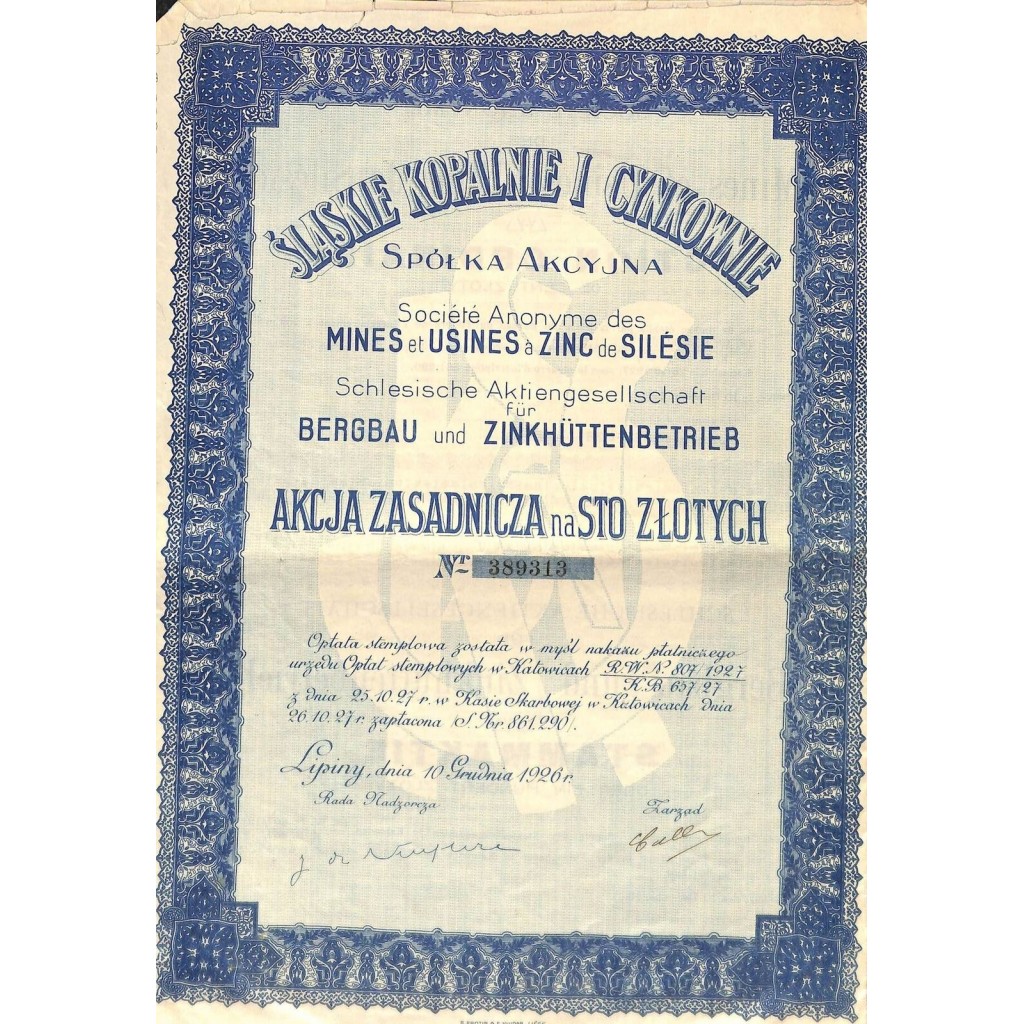 ŚLĄSKIE KOPALNIE I CYNKOWNIE
SPÓŁKA AKCYJNA
Société Anonyme des
MINES et USINES à ZINC de SILÉSIE
Schlesische Aktiengesellschaft
für
BERGBAU und ZINKHÜTTENBETRIEB
AKCJA ZASADNICZA na STO ZŁOTYCH
Nr. 389313
Opłata stemplowa została w myśl nakazu płatniczego
urzędu Opłat stemplowych w Katowicach R.W. № 807/1927
K.B. 657 27
z dnia 25.10.27 r. w Kasie Skarbowej w Katowicach dnia
26.10.27 r. zapłacona S. Nr. 861.290/.
Lipiny, dnia 10 Grudnia 1926 r.
Rada Nadzorcza Zarząd